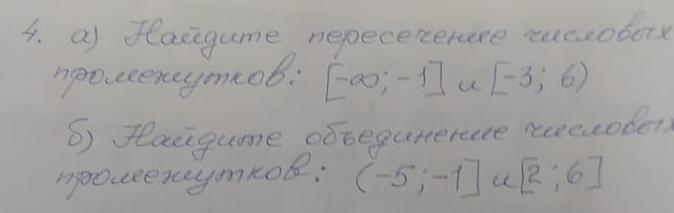 4. а) Найдите пересечение числовых
промежутков: [-∞; -1] и [-3; 6)
б) Найдите объединение числовых
промежутков: (-5; -1] и [2; 6]